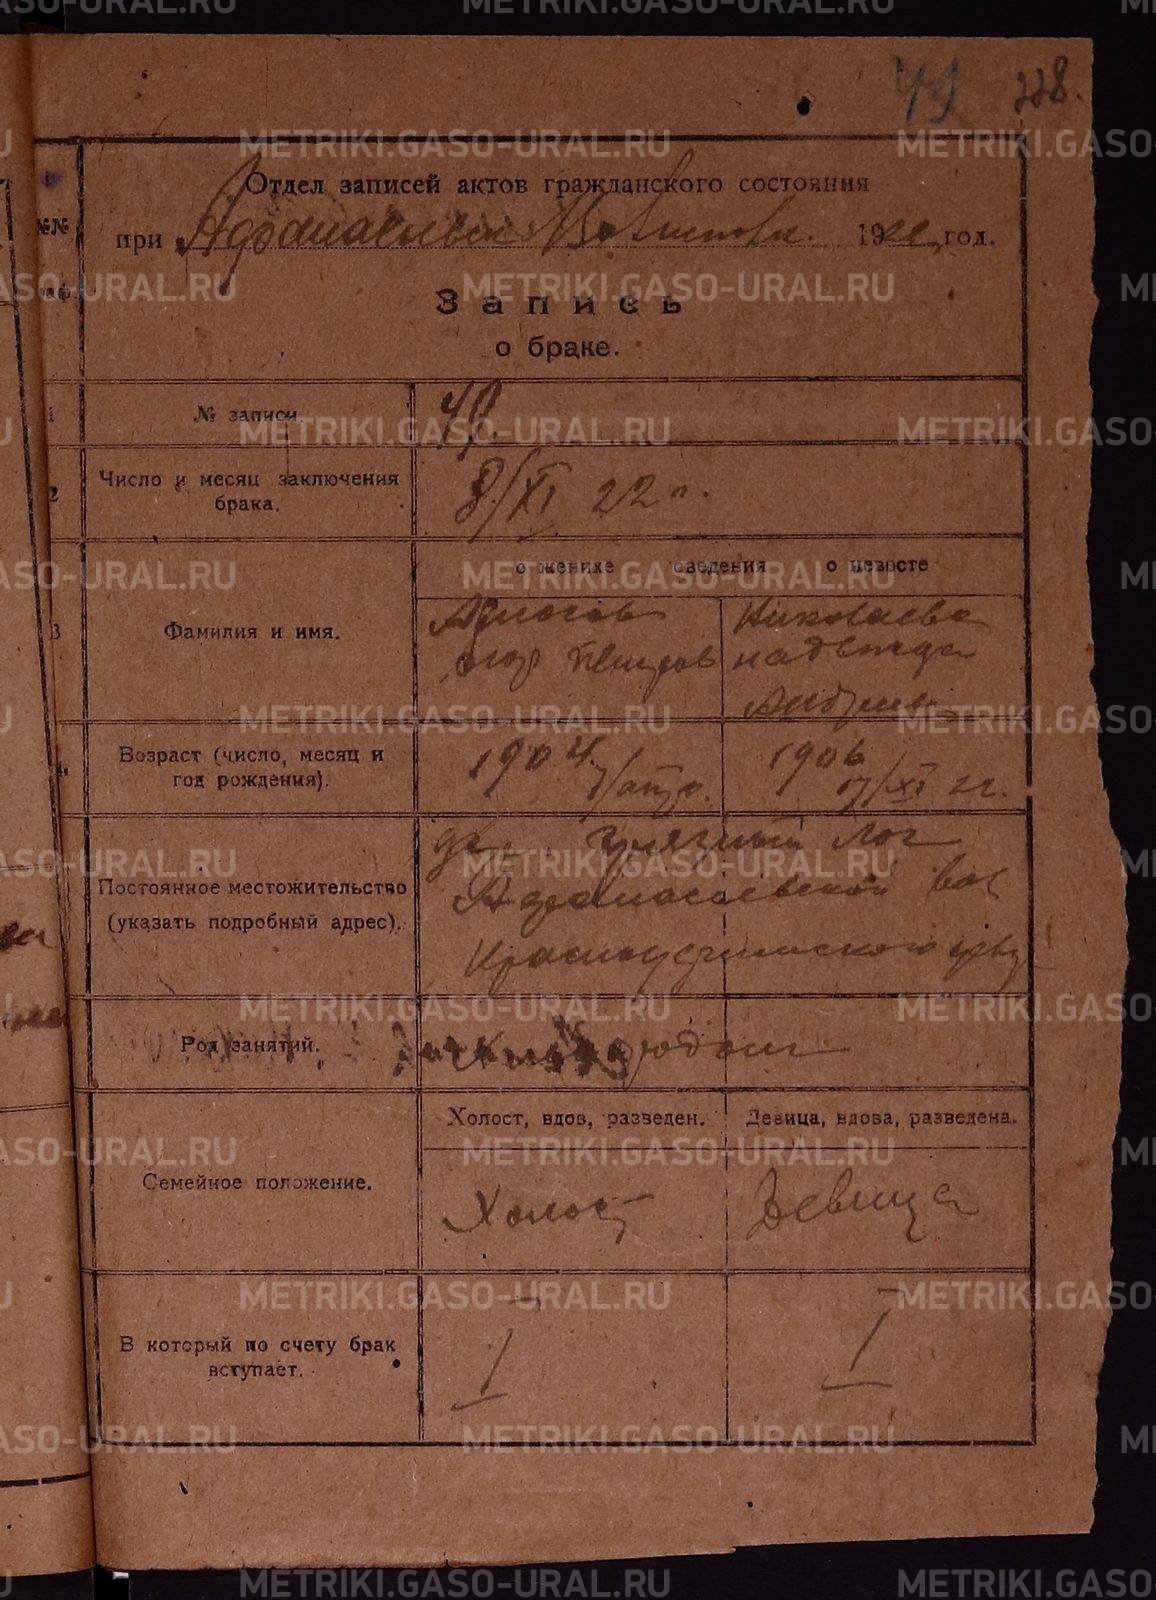 49 228.
Отдел записей актов гражданского состояния
№№ при Афанасьевск. Волисполк. 1922 год.
граф.
Запись
о браке.
1 № записи. 49
Число и месяц заключения
2 брака. 8/XI 22 г.
о женихе сведения о невесте
Николаева
3 Фамилия и имя.
Петров Надежда
Андреев
Возраст (число, месяц и 1904 1906
4. год рождения). /XI 22.
де. Грязный Лог
Постоянное местожительство Афанасьевской вол
(указать подробный адрес).
Красноуфимского уезд
Род занятий.
Холост, вдов, разведен. Девица, вдова, разведена.
Семейное положение. Холост Девица
В который по счету брак I I
вступает.
METRIKI.GASO-URAL.RU